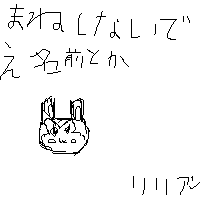 まねしないで
え名前とか
リリアン